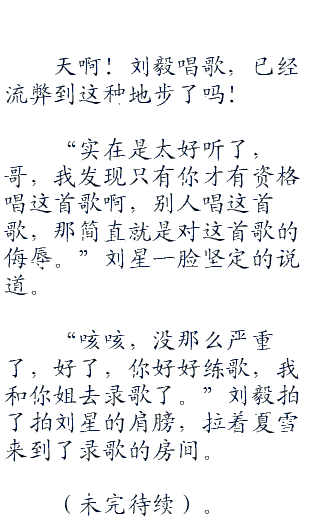 天啊！刘毅唱歌，已经
流弊到这种地步了吗！
“实在是太好听了，
哥，我发现只有你才有资格
唱这首歌啊，别人唱这首
歌，那简直就是对这首歌的
侮辱。”刘星一脸坚定的说
道。
“咳咳，没那么严重
了，好了，你好好练歌，我
和你姐去录歌了。”刘毅拍
了拍刘星的肩膀，拉着夏雪
来到了录歌的房间。
（未完待续）。